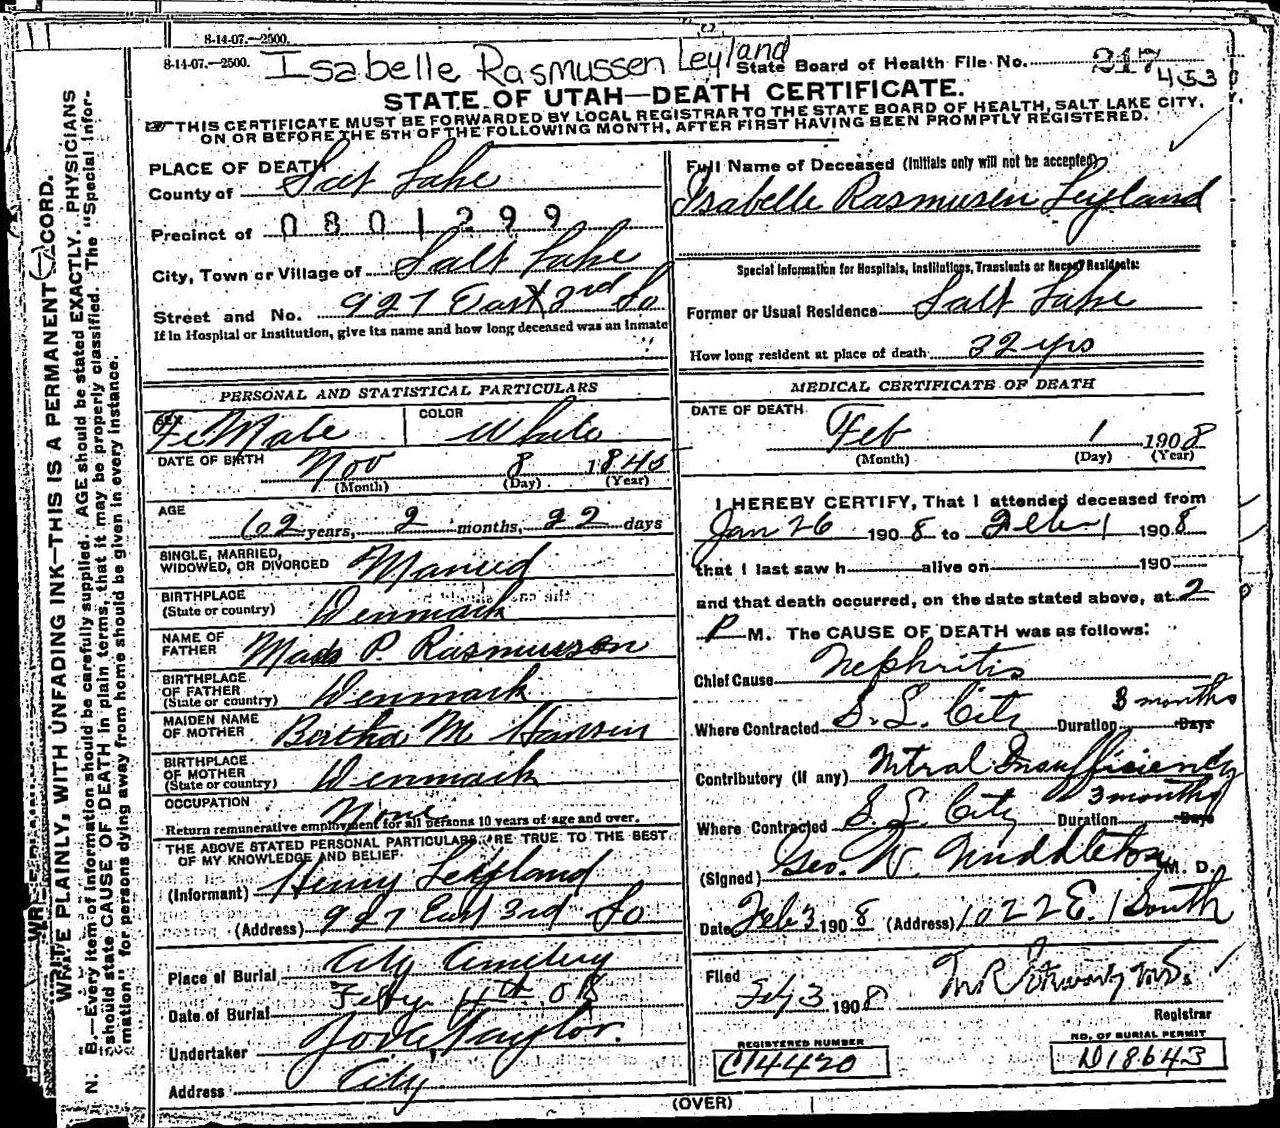 8-14-07.—2500.
8-14-07.—2500.
Isabelle Rasmussen Leyland
State Board of Health File No. 217
453
STATE OF UTAH—DEATH CERTIFICATE.
THIS CERTIFICATE MUST BE FORWARDED BY LOCAL REGISTRAR TO THE STATE BOARD OF HEALTH, SALT LAKE CITY.
ON OR BEFORE THE 5TH OF THE FOLLOWING MONTH, AFTER FIRST HAVING BEEN PROMPTLY REGISTERED.
WRITE PLAINLY, WITH UNFADING INK—THIS IS A PERMANENT RECORD.
N. B.—Every item of information should be carefully supplied. AGE should be stated EXACTLY. PHYSICIANS
should state CAUSE OF DEATH in plain terms, that it may be properly classified. The "Special Infor-
mation" for persons dying away from home should be given in every instance.
PLACE OF DEATH
County of Salt Lake
Precinct of 0801299
City, Town or Village of Salt Lake
Street and No. 927 East 3rd So
If in Hospital or Institution, give its name and how long deceased was an Inmate
PERSONAL AND STATISTICAL PARTICULARS
SEX FeMale
COLOR White
DATE OF BIRTH Nov 8 1845
(Month) (Day) (Year)
AGE 62 years, 2 months, 22 days
SINGLE, MARRIED,
WIDOWED, OR DIVORCED Married
BIRTHPLACE
(State or country) Denmark
NAME OF
FATHER Mads P. Rasmusson
BIRTHPLACE
OF FATHER
(State or country) Denmark
MAIDEN NAME
OF MOTHER Bertha M Hansen
BIRTHPLACE
OF MOTHER
(State or country) Denmark
OCCUPATION None
Return remunerative employment for all persons 10 years of age and over.
THE ABOVE STATED PERSONAL PARTICULARS ARE TRUE TO THE BEST
OF MY KNOWLEDGE AND BELIEF
(Informant) Henry Leyland
(Address) 927 East 3rd So
Place of Burial City Cemetery
Date of Burial Feby 4th 08
Undertaker Taylor.
Address City
Full Name of Deceased (Initials only will not be accepted)
Isabelle Rasmusen Leyland
Special Information for Hospitals, Institutions, Transients or Recent Residents:
Former or Usual Residence Salt Lake
How long resident at place of death 32 yrs
MEDICAL CERTIFICATE OF DEATH
DATE OF DEATH
Feb 1 1908
(Month) (Day) (Year)
I HEREBY CERTIFY, That I attended deceased from
Jan 26 1908 to Feb 1 1908
that I last saw h alive on 190
and that death occurred, on the date stated above, at 2
P M. The CAUSE OF DEATH was as follows:
Chief Cause Nephritis
Where Contracted S. L. City Duration 3 months Days
Contributory (if any) Mitral Insufficiency
Where Contracted S. L. City Duration 3 months Days
(Signed) Geo. W. Middleton M. D.
Date Feb 3 1908 (Address) 1022 E. 1 South
Filed
Feb 3 1908
Registrar
REGISTERED NUMBER
C14420
NO. OF BURIAL PERMIT
D18643
(OVER)